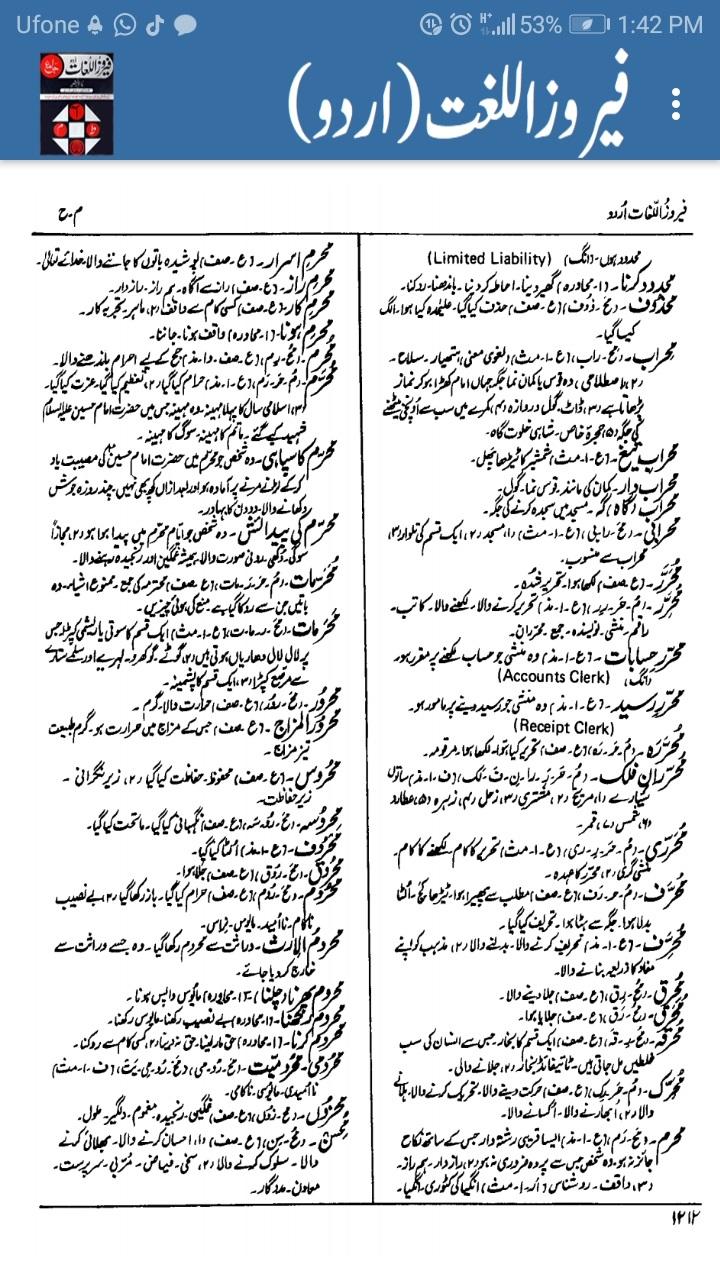 Ufone 53% 1:42 PM
فیروز اللغت (اردو)
فیروزُ اللّغات اُردو
م۔ح
محدود ہوں۔ (انگ) (Limited Liability)
محدود کرنا۔ (ا۔ محاورہ) گھیر دینا۔ احاطہ کر دینا۔ باندھنا۔ روکنا۔
محذوف۔ (مح۔ ذُوف) (ع۔ صف) حذف کیا گیا۔ علیحدہ کیا ہوا۔ الگ
کیا گیا۔
محراب۔ (مح۔ راب) (ع۔ ا۔ مث) (لغوی معنی) ہتھیار۔ سلاح۔
(۲) (اصطلاحی) دہ قوس یا کمان نما جگہ جہاں امام کھڑا ہو کر نماز
پڑھاتا ہے (۳) ڈاٹ۔ گول دروازہ (۴) کمرے میں سب سے اونچی بیٹھنے
کی جگہ (۵) حجرۂ خاص۔ شاہی خلوت گاہ۔
محرابِ تیغ۔ (ع۔ ا۔ مث) شمشیر کا ٹیڑھا پھل۔
محراب دار۔ کمان کی مانند۔ قوس نما۔ گول۔
محراب گاہ / گہ۔ مسجد میں سجدہ کرنے کی جگہ۔
محرابی۔ (مح۔ رابی) (ع۔ ا۔ مث) (۱) مسجد (۲) ایک قسم کی تلوار (۳)
محراب سے منسوب۔
مُحَرَّر۔ (ع۔ صف) لکھا ہوا۔ تحریر شدہ۔
مُحَرِّر۔ (مُ۔ حَر۔ رِر) (ع۔ ا۔ مذ) تحریر کرنے والا۔ لکھنے والا۔ کاتب۔
راقم۔ منشی۔ نویسندہ۔ جمع۔ محرران۔
محررِ حسابات۔ (ع۔ ا۔ مذ) وہ منشی جو حساب لکھنے پر مقرر ہو
(انگ) (Accounts Clerk)
محررِ رسید۔ (ع۔ ا۔ مذ) وہ منشی جو رسید دینے پر مامور ہو۔
(Receipt Clerk)
مُحَرَّرَہ۔ (مُ۔ حَر۔ رَہ) (ع۔ صف) تحریر کیا ہوا۔ لکھا ہوا۔ مرقومہ۔
مُحَرِّرانِ فلک۔ (مُ۔ حَر۔ رِ۔ را۔ نِ۔ فَ۔ لک) (ف۔ ا۔ مذ) ساتوں
سیارے (۱) مریخ (۲) مشتری (۳) زحل (۴) زہرہ (۵) عطارد
(۶) شمس (۷) قمر۔
مُحَرِّری۔ (مُ۔ حَر۔ رِ۔ ری) (ع۔ ا۔ مث) تحریر کا کام۔ لکھنے کا کام۔
منشی گری (۲) محرر کا عہدہ۔
مُحَرَّف۔ (مُ۔ حَر۔ رَف) (ع۔ صف) مطلب سے پھیرا ہوا۔ ٹیڑھا۔ کج۔ الٹا
بدلا ہوا۔ جگہ سے ہٹا ہوا۔ تحریف کیا گیا۔
مُحَرِّف۔ (ع۔ ا۔ مذ) تحریف کرنے والا۔ بدلنے والا (۲) مذہب کو اپنے
مفاد کا ذریعہ بنانے والا۔
مُحرِق۔ (مُح۔ رِق) (ع۔ صف) جلا دینے والا۔
مُحرَق۔ (مُح۔ رَق) (ع۔ صف) جلایا ہوا۔
مُحرقہ۔ (مُح۔ رِ۔ قہ) (ع۔ صف) ایک قسم کا بخار جس سے انسان کی سب
خلطیں جل جاتی ہیں۔ ٹائیفائڈ بخار (۲) جلانے والی۔
مُحَرِّک۔ (مُ۔ حَر۔ رِک) (ع۔ صف) حرکت دینے والا۔ تحریک کرنے والا۔ ہلانے
والا (۲) اُبھارنے والا۔ اکسانے والا۔
محرم۔ (مَح۔ رَم) (ع۔ ا۔ مذ) ایسا قریبی رشتہ دار جس کے ساتھ نکاح
جائز نہ ہو۔ وہ شخص جس سے پردہ ضروری نہ ہو (۲) رازدار۔ ہمراز۔
(۳) واقف۔ روشناس (اُر۔ ا۔ مث) انگیا کی کٹوری۔ انگیا۔
محرمِ اسرار۔ (ع۔ صف) پوشیدہ باتوں کا جاننے والا۔ خدائے تعالیٰ۔
محرمِ راز۔ (ع۔ صف) راز سے آگاہ۔ ہمراز۔ رازدار۔
محرمِ کار۔ (ع۔ صف) کسی کام سے واقف (۲) ماہر۔ تجربہ کار۔
محرم ہونا۔ (ا۔ محاورہ) واقف ہونا۔ جاننا۔
مُحرِم۔ (مُح۔ رِم) (ع۔ صف۔ ا۔ مذ) حج کے لیے احرام باندھنے والا۔
مُحَرَّم۔ (مُ۔ حَر۔ رَم) (ع۔ ا۔ مذ) حرام کیا گیا (۲) تعظیم کیا گیا۔ عزت کیا گیا۔
(۳) اسلامی سال کا پہلا مہینہ۔ وہ مہینہ جس میں حضرت امام حسین علیہ السلام
شہید کیے گئے۔ ماتم کا مہینہ۔ سوگ کا مہینہ۔
محرم کا سپاہی۔ وہ شخص جو محرم میں حضرت امام حسینؑ کی مصیبت یاد
کر کے لڑنے مرنے پر آمادہ ہو اور بعد ازاں کچھ بھی نہیں۔ چند روزہ جوش
دکھانے والا۔ دو دن کا بہادر۔
محرم کی پیدائش۔ وہ شخص جو ایامِ محرم میں پیدا ہوا ہو (۲) مجازاً
سوگی۔ دُکھی۔ رونی صورت والا۔ ہمیشہ غمگین اور رنجیدہ رہنے والا۔
مُحَرَّمات۔ (مُ۔ حَر۔ رَ۔ مات) (ع۔ صف) محرمہ کی جمع۔ ممنوع اشیا۔ وہ
باتیں جن سے روکا گیا ہے منع کی ہوئی چیزیں۔
محرمات۔ (مح۔ ر۔ مات) (ع۔ ا۔ مث) ایک قسم کا سوتی یا ریشمی کپڑا جس
پر لال لال دھاریاں ہوتی ہیں (۲) گوٹے۔ گوکھرو۔ لہریے اور سلمے ستارے
سے مرصع کپڑا (۳) ایک قسم کا پشمینہ۔
محرور۔ (مح۔ رُور) (ع۔ صف) حرارت والا۔ گرم۔
محرورُ المزاج۔ (ع۔ صف) جس کے مزاج میں حرارت ہو۔ گرم طبیعت
تیز مزاج۔
محروس۔ (ع۔ صف) محفوظ۔ حفاظت کیا گیا (۲) زیرِ نگرانی۔
زیرِ حفاظت۔
محروسہ۔ (مح۔ رُو۔ سہ) (ع۔ صف) نگہبانی کیا گیا۔ ماتحت کیا گیا۔
محروف۔ (ع۔ ا۔ مذ) اُلٹا کیا گیا۔
محروق۔ (مح۔ رُوق) (ع۔ صف) جلا ہوا۔
محروم۔ (مح۔ رُوم) (ع۔ صف) حرام کیا گیا۔ باز رکھا گیا (۲) بے نصیب
ناکام۔ نااُمید۔ مایوس۔ نراس۔
محرومُ الارث۔ وراثت سے محروم رکھا گیا۔ وہ جسے وراثت سے
خارج کر دیا جائے۔
محروم پھرنا / چلنا۔ (ا۔ محاورہ) مایوس واپس ہونا۔
محروم رکھنا۔ (ا۔ محاورہ) بے نصیب رکھنا۔ مایوس رکھنا۔
محروم کرنا۔ (ا۔ محاورہ) حق مار لینا۔ حق نہ دینا (۲) کسی کام سے روکنا۔
محرومی۔ محرومیت۔ (مح۔ رُو۔ می) (مح۔ رُو۔ می۔ یَت) (ف۔ ا۔ مث)
نا اُمیدی۔ مایوسی۔ ناکامی۔
محزون۔ (مح۔ زُون) (ع۔ صف) غمگین۔ رنجیدہ۔ مغموم۔ دلگیر۔ ملول۔
محسن۔ (مُح۔ سِن) (ع۔ صف) (۱) احسان کرنے والا۔ بھلائی کرنے
والا۔ سلوک کرنے والا (۲) سخی۔ فیاض۔ مُربّی۔ سرپرست۔
معاون۔ مددگار۔
۱۲۱۲